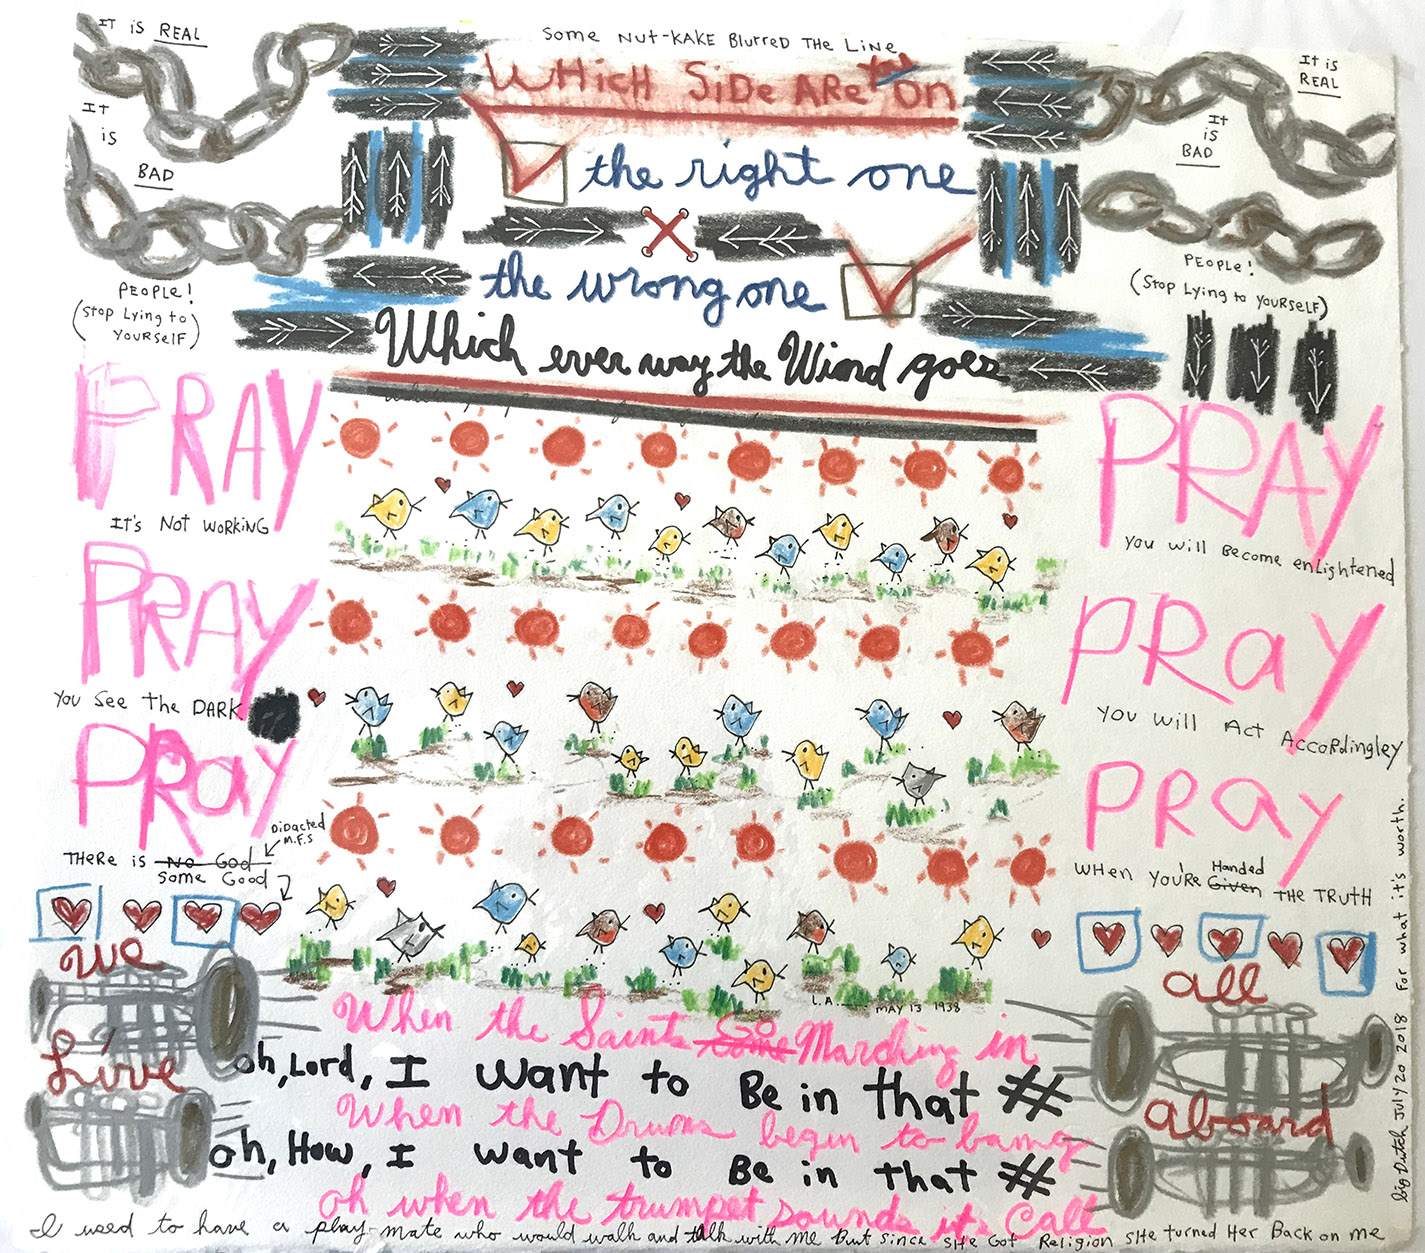 IT iS REAL
SOME NUT-KAKE BLURRED THE LINE
It is
REAL
WHiCH SiDe ARe You on
IT
is
BAD
It
is
BAD
the right one
the wrong one
PEOPLE!
(Stop Lying to
YOURSELF)
PEOPLE!
(Stop Lying to YOURSELF)
Which ever way the Wind goes
PRAY
IT'S NOT WORKING
PRAY
You will Become enlightened
PRAY
You See The DARK
PRay
You Will Act Accordingley
PRay
DiDacted
M.F.S
THeRe iS No God
Some Good
PRay
WHen You're Given Handed THE TRUTH
We
all
L.A. MAY 13 1938
Live
aboard
When the Saints Come Go Marching in
oh, Lord, I want to Be in that #
When the Drums begin to bang
oh, How, I want to Be in that #
oh when the trumpet sounds it's Call
I used to have a play-mate who would walk and talk with me But since SHe Got Religion SHe turned Her Back on me
big Dutch JULY 20 2018 For what it's worth.